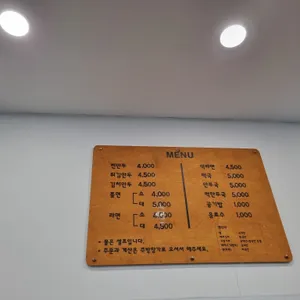 MENU
찐만두 4,000
튀김만두 4,500
김치만두 4,500
쫄면 소 4,000
대 5,000
라면 소 4,000
대 4,500
떡라면 4,500
떡국 5,000
만두국 5,000
떡만두국 5,000
공기밥 1,000
음료수 1,000
- 물은 셀프입니다.
- 주문과 계산은 주방앞으로 오셔서 해주세요.